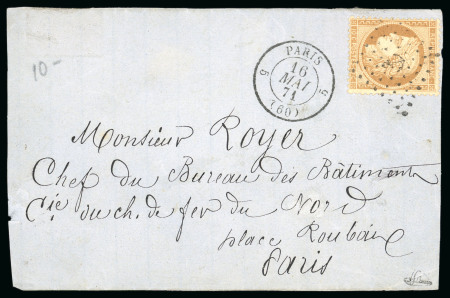 10-
PARIS
5 16 5
MAI
71
(60)
Monsieur Royer
Chef du Bureau des Bâtiments
Cie du ch. de fer du Nord
place Roubaix
Paris